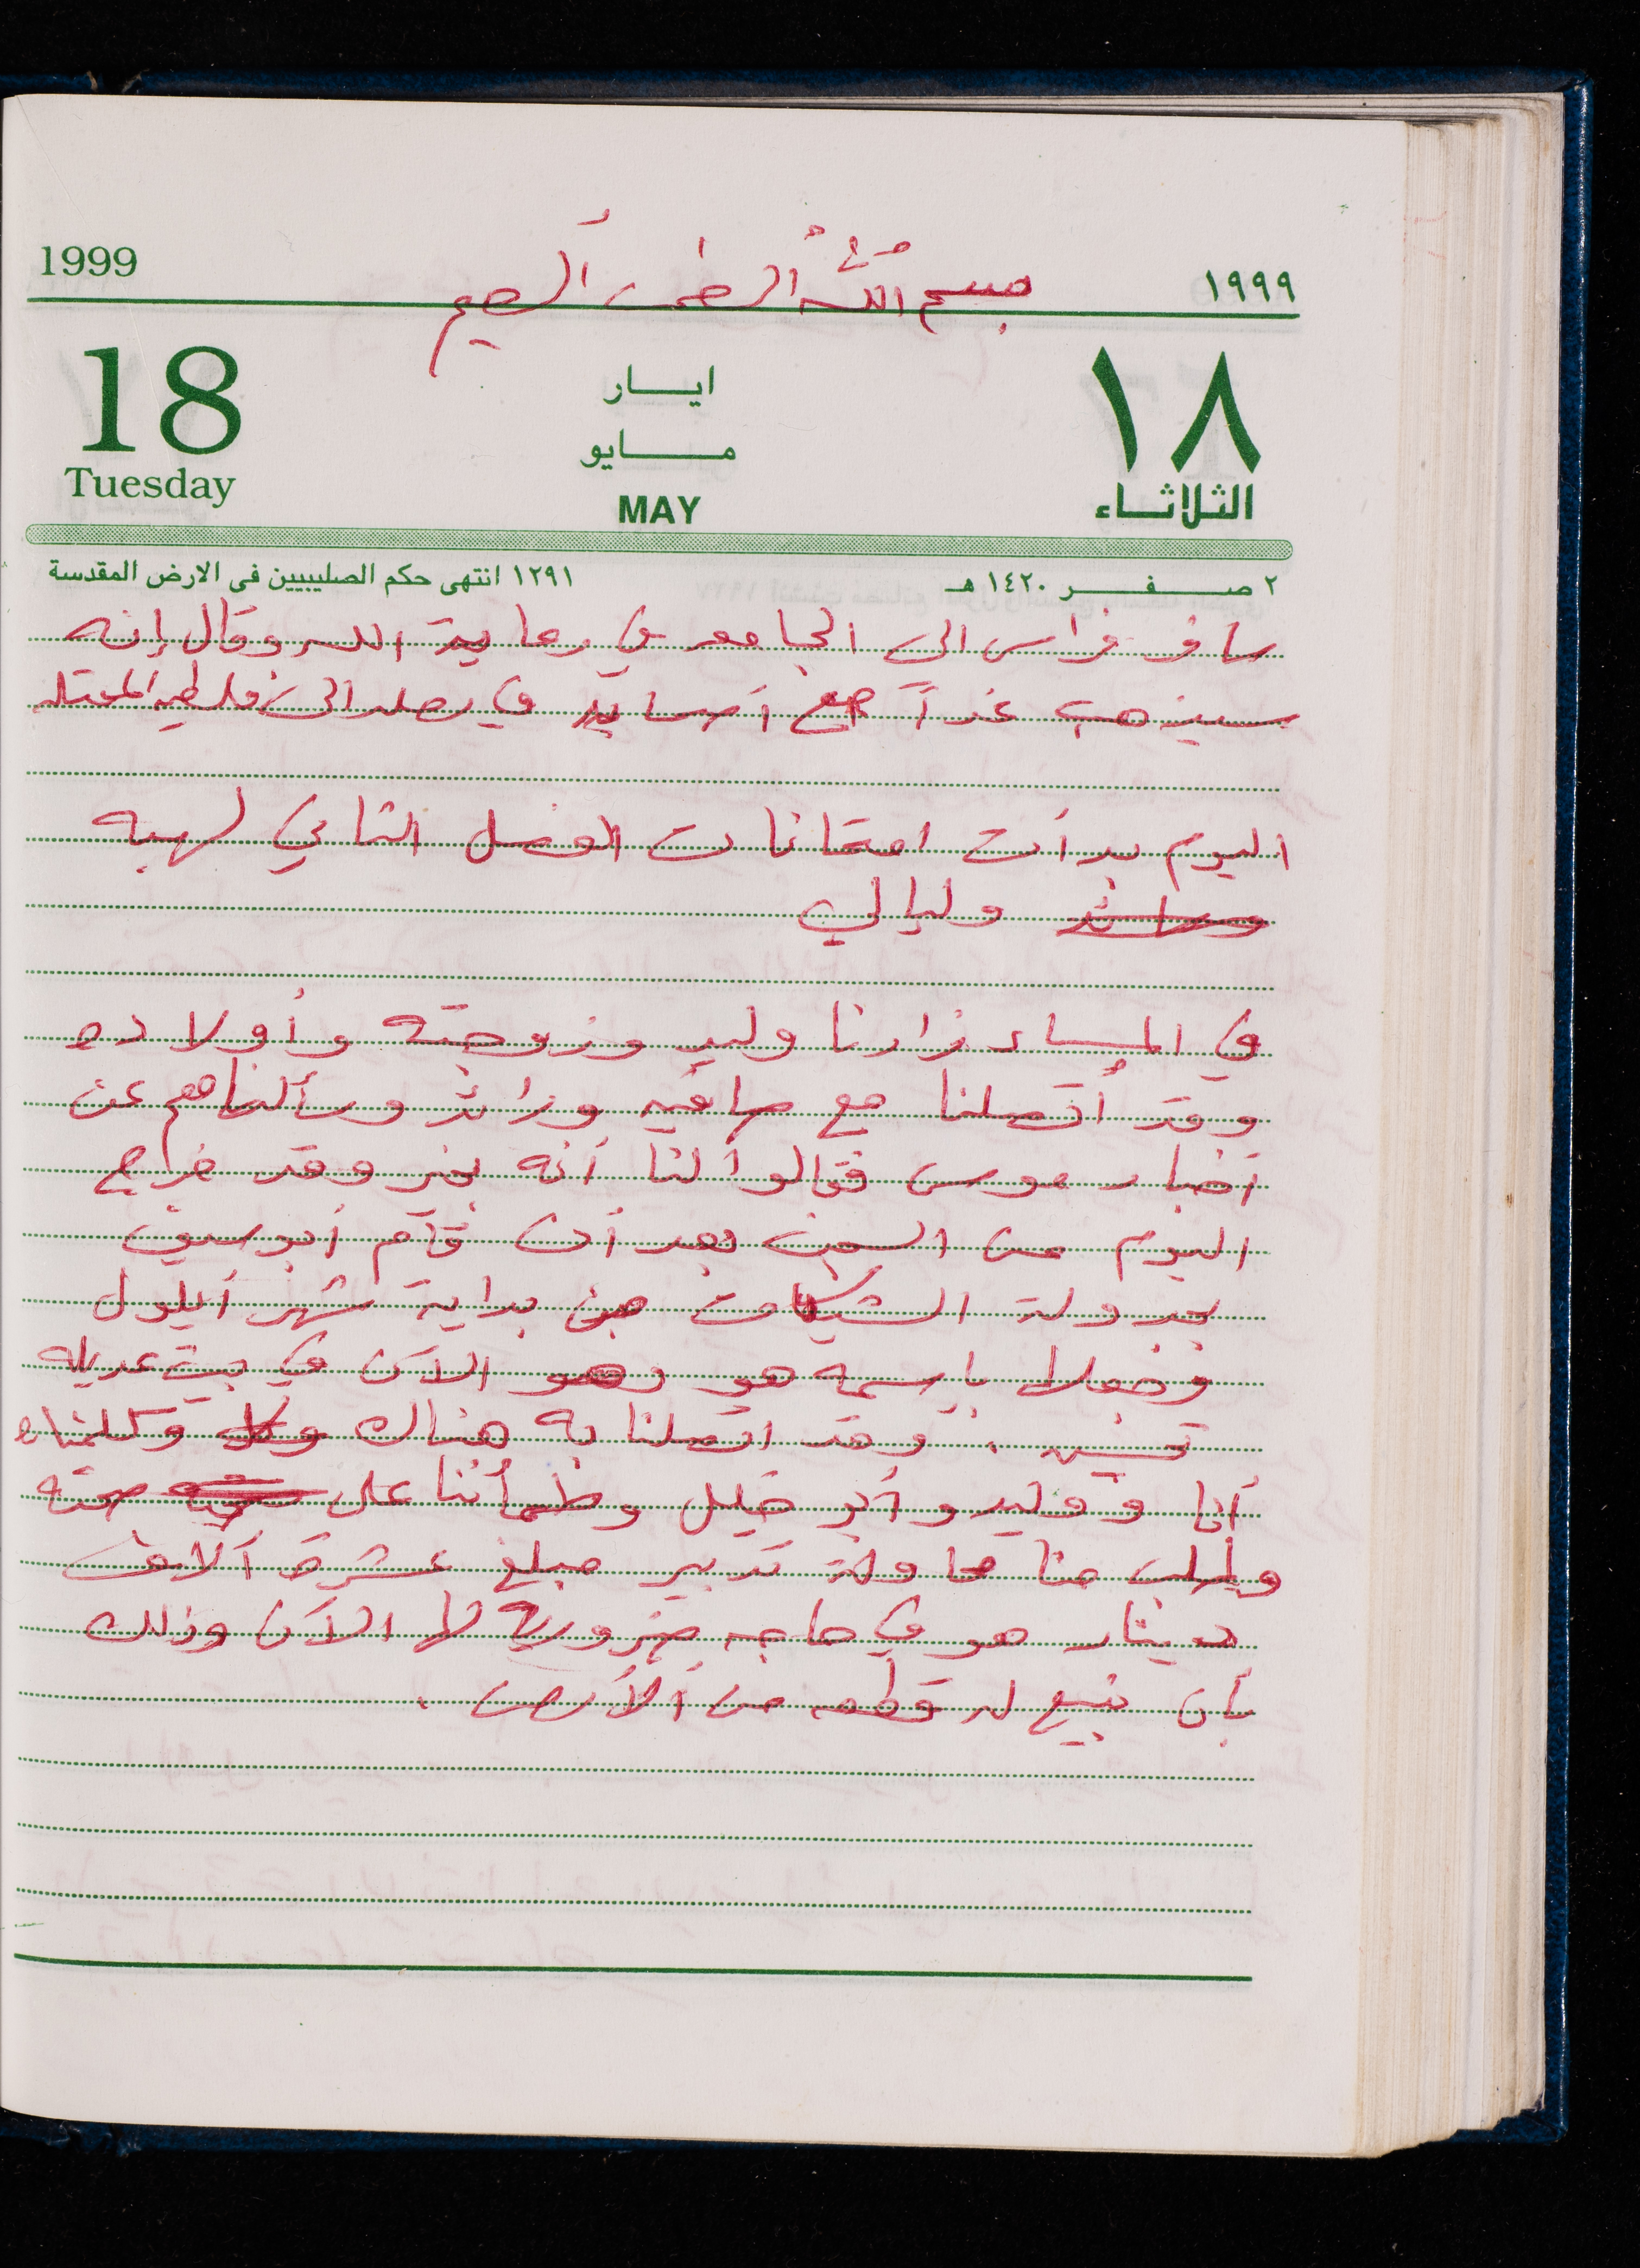 بسم الله الرحمن الرحيم
1999 ١٩٩٩
18 ايـــار ١٨
مـــايو
Tuesday MAY الثلاثاء
٢ صفر ١٤٢٠ هـ ١٢٩١ انتهى حكم الصليبيين فى الارض المقدسة
سافر فراس الى الجامعه في رعاية الله وقال إنه
سيذهب غداً مع أصحابه في رحله الى فلسطين المحتله
اليوم بدأت امتحانات الفصل الثاني لهبه
وليالي
في المساء زارنا وليد وزوجته وأولاده
وقد أتصلنا مع صافيه ورائد وسألناهم عن
أخبار موسى فقالوا لنا أنه بخير وقد خراج
اليوم من السجن بعد أن قام أبو سيف
بجدولة الشيكات من بداية شهر أيلول
فضعلا بإسمه هو وهو الآن في بيت عديله
تحسين . وقد اتصلنا به هناك وكلمناه
أنا و وليد و أبو خليل وطمأننا على صحته
وطلب منا محاولة تدبير مبلغ عشرة آلاف
دينار هو في حاجه ضرورية لها الآن وذلك
بأن نبيع له قطعه من الأرض .